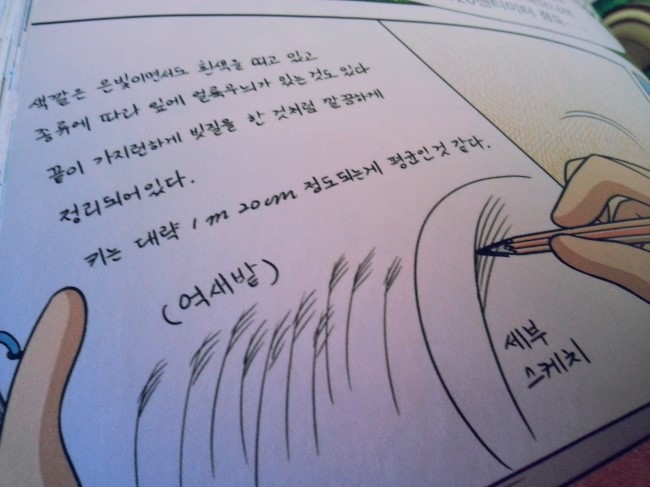 색깔은 은빛이면서도 흰색을 띠고 있고
종류에 따라 잎에 얼룩무늬가 있는것도 있다
끝이 가지런하게 빗질을 한 것처럼 깔끔하게
정리되어있다.
키는 대략 1m 20cm 정도되는게 평균인것 같다.
(억새밭)
세부
스케치